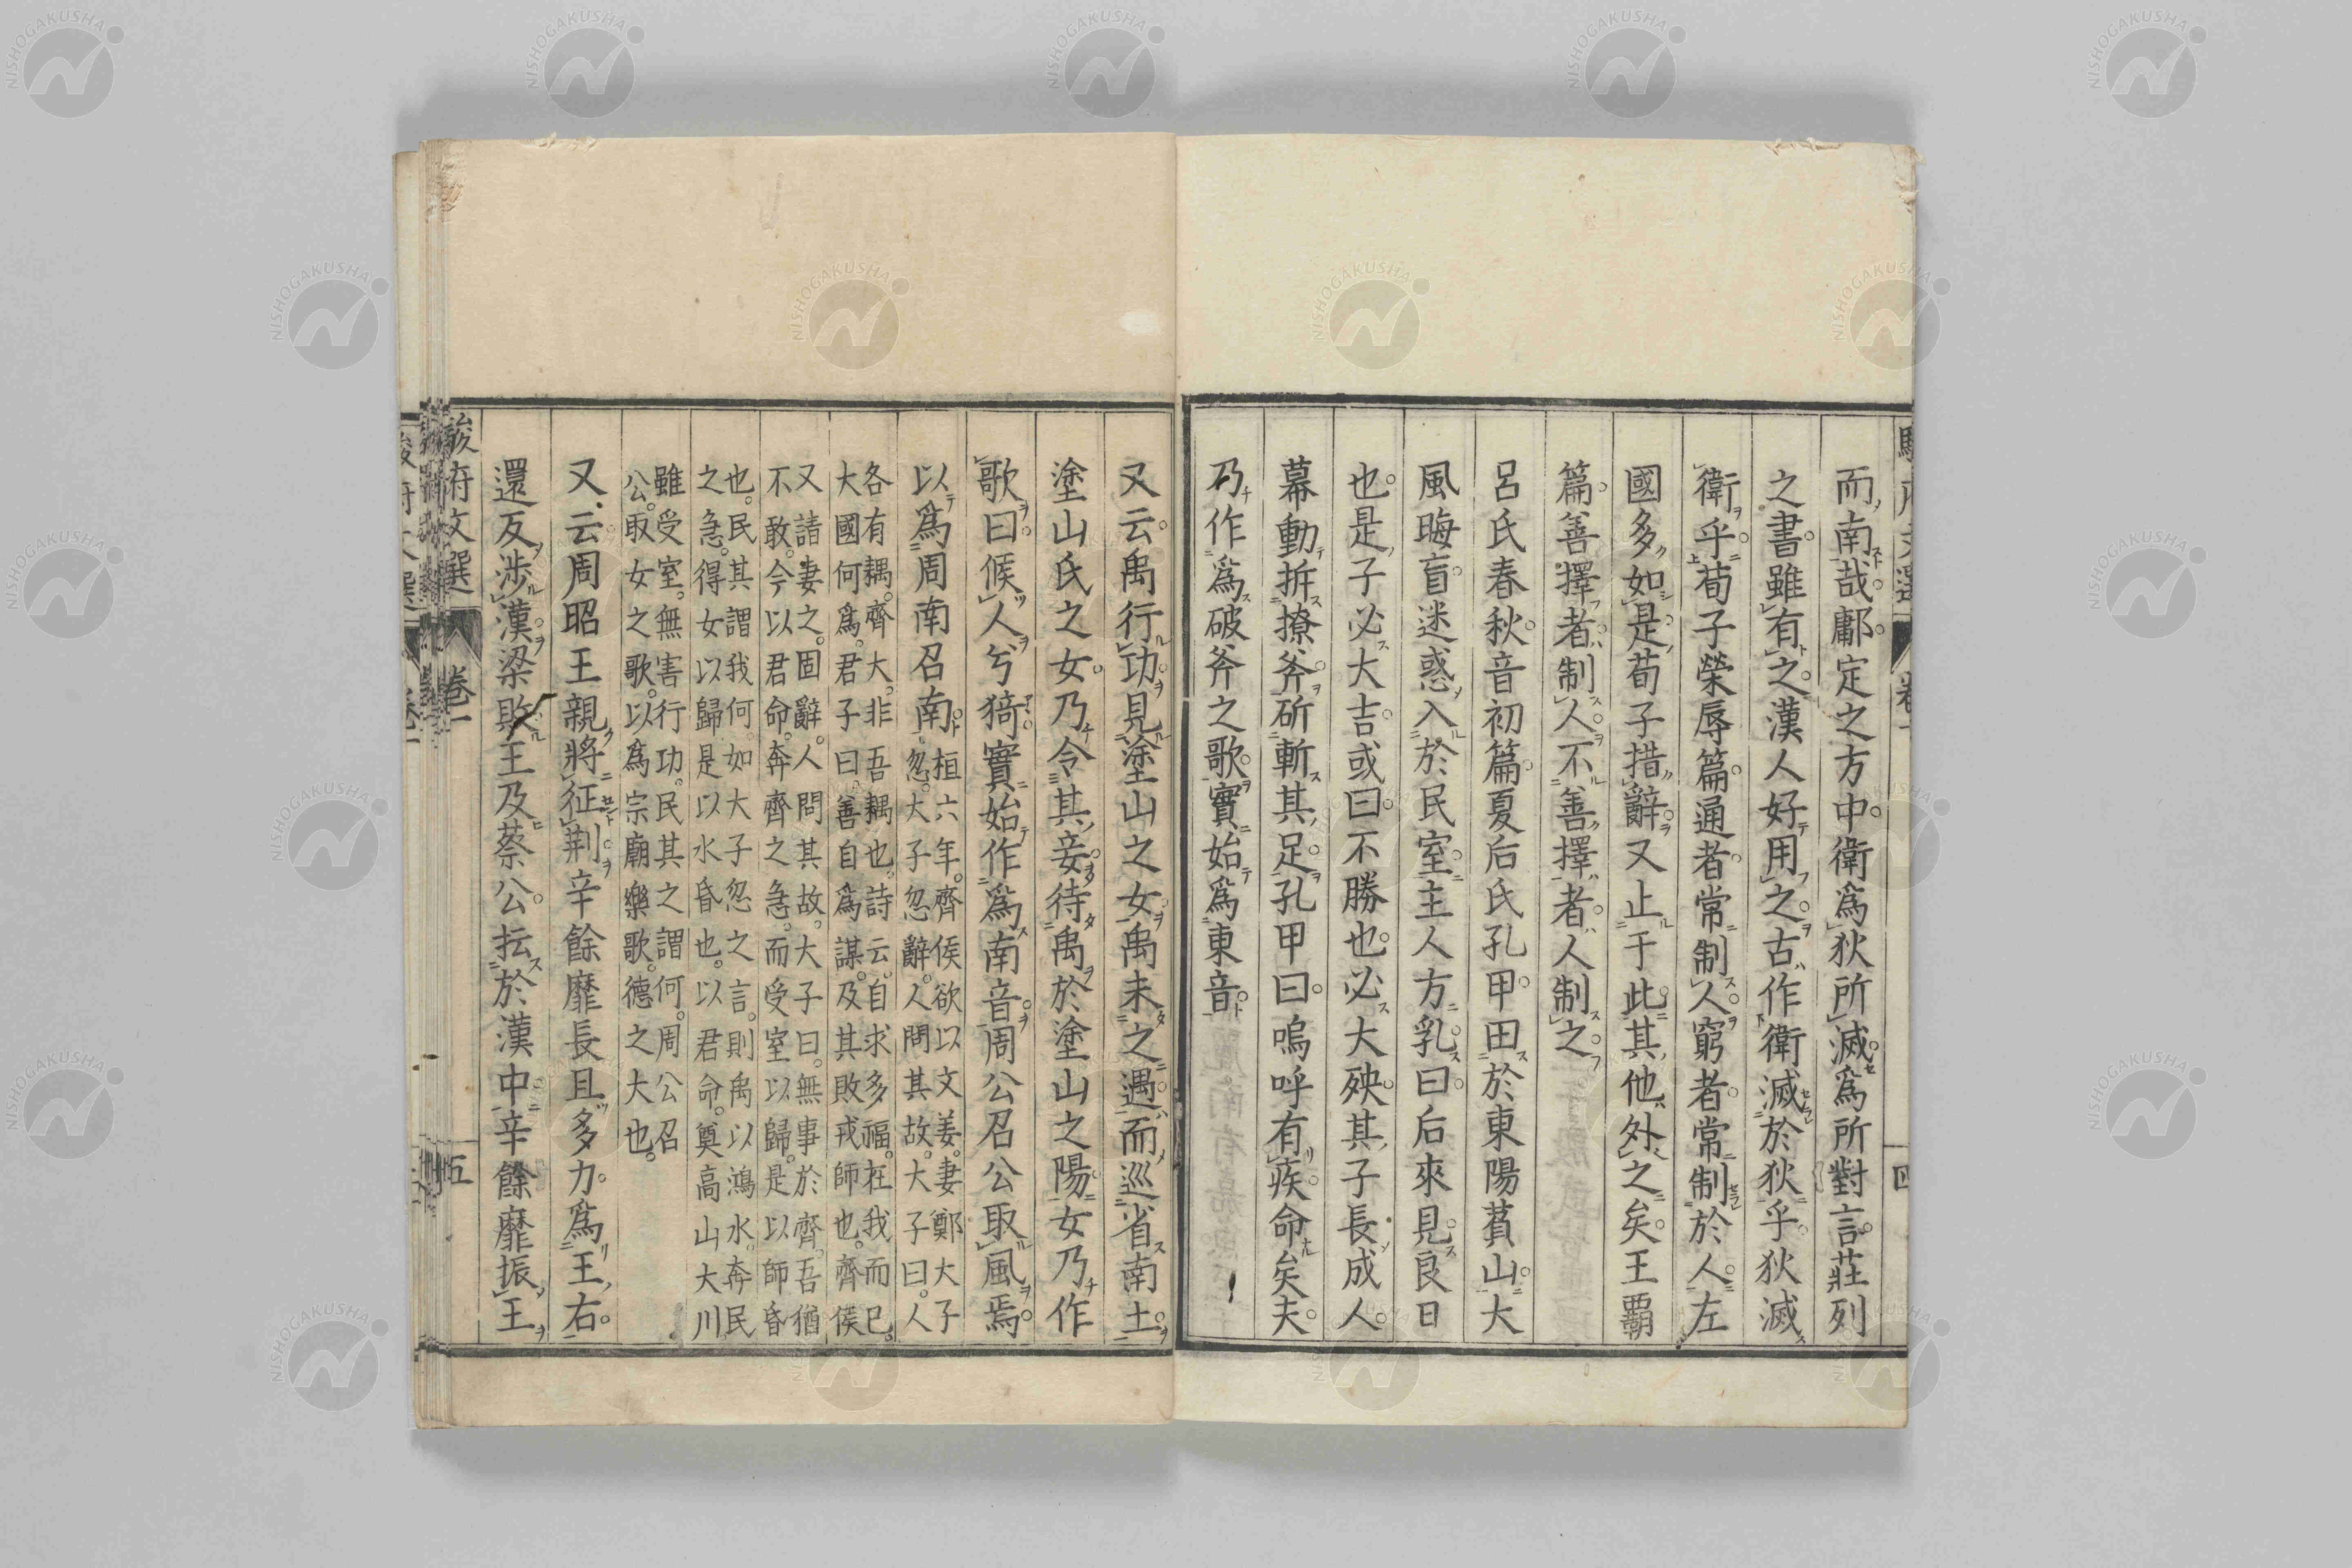 而南哉鄘定之方中衛爲狄所滅爲所對言莊列
之書雖有之漢人好用之古作衛滅於狄乎狄滅
衛乎荀子榮辱篇通者常制人窮者常制於人左
國多如是荀子措辭又止于此其他外之矣王覇
篇善擇者制人不善擇者人制之
呂氏春秋音初篇夏后氏孔甲田於東陽萯山大
風晦盲迷惑入於民室主人方乳曰后來見良日
也是子必大吉或曰不勝也必大殃其子長成人
幕動拆撩斧斫斬其足孔甲曰嗚呼有疾命矣夫
乃作爲破斧之歌實始爲東音
四
又云禹行功見塗山之女禹未之遇而巡省南土
塗山氏之女乃令其妾待禹於塗山之陽女乃作
歌曰候人兮猗實始作爲南音周公召公取風焉
以爲周南召南忽桓六年齊侯欲以文姜妻鄭大子
大子忽辭人問其故大子曰人
各有耦齊大非吾耦也詩云自求多福在我而已
大國何爲君子曰善自爲謀及其敗戎師也齊侯
又請妻之固辭人問其故大子曰無事於齊吾猶
不敢今以君命奔齊之急而受室以歸是以師昏
也民其謂我何如大子忽之言則禹以鴻水奔民
之急得女以歸是以水昏也以君命奠高山大川
雖受室無害行功民其之謂何周公召
公取女之歌以爲宗廟樂歌德之大也
又云周昭王親將征荆辛餘靡長且多力爲王右
還反涉漢梁敗王及蔡公抎於漢中辛餘靡振王
駿府文選 卷一 五
NISHOGAKUSHA